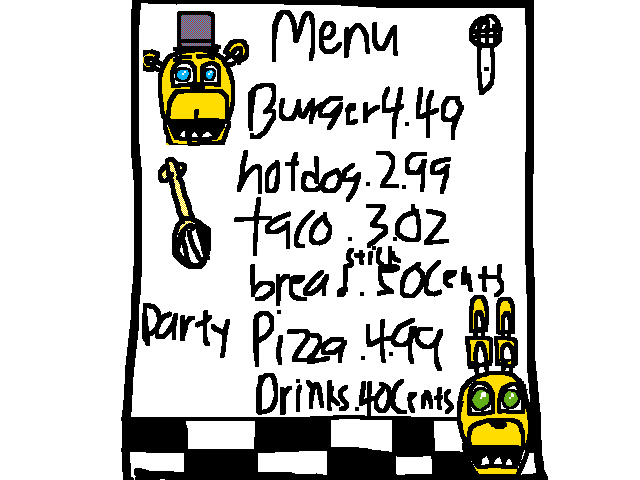 Menu
Burger 4.49
hotdog.2.99
taco.3.02
bread stick.50Cents
Party Pizza.4.99
Drinks.40Cents